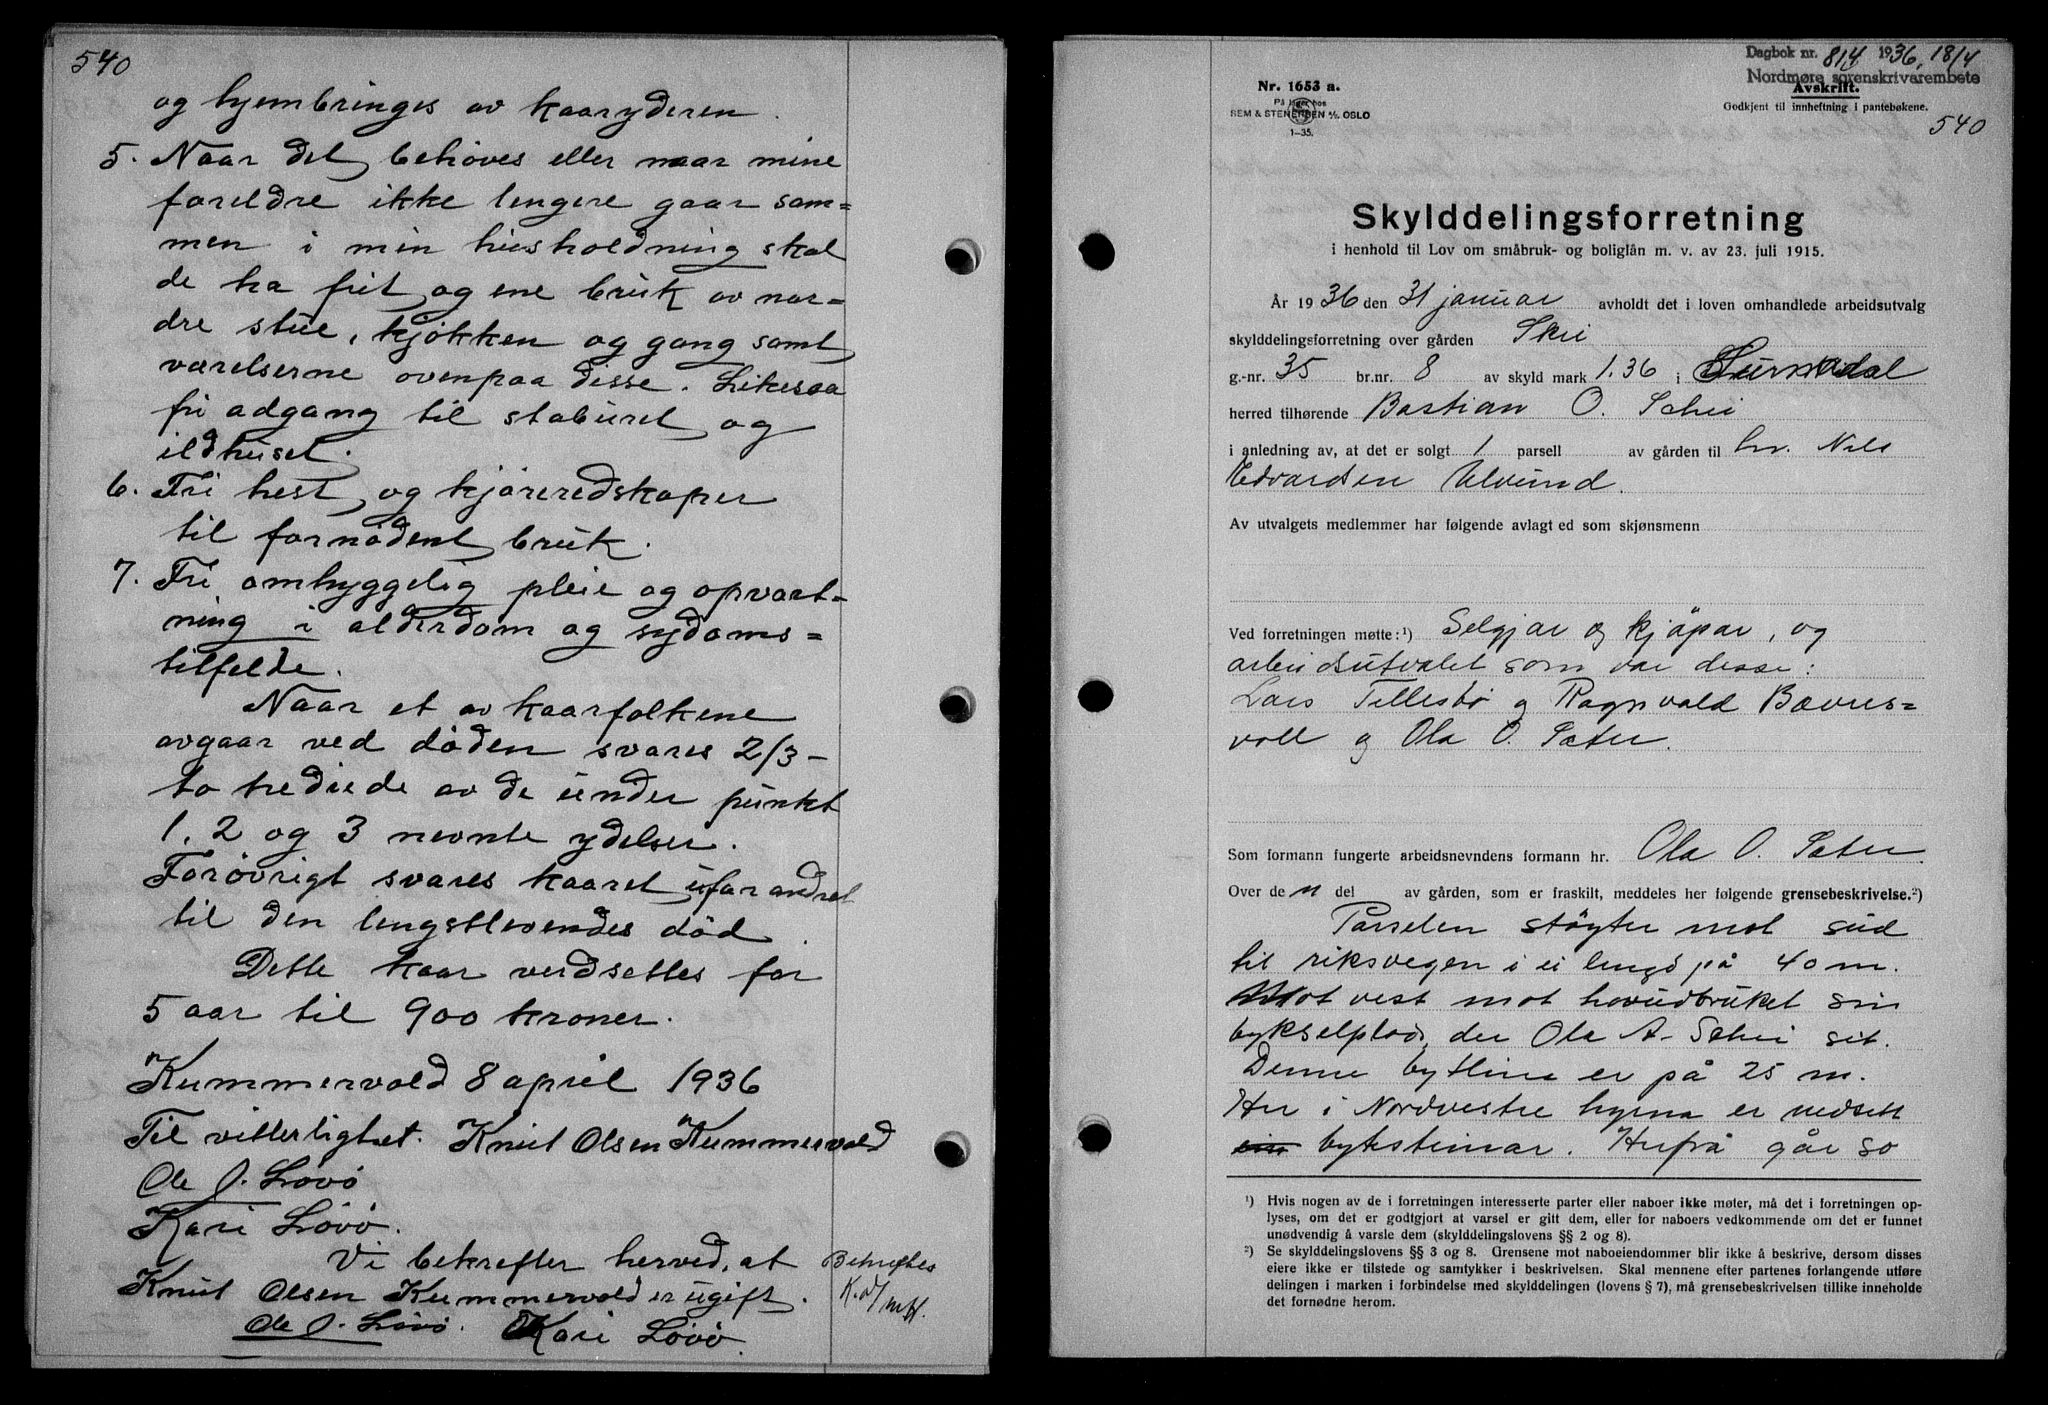 540
og hjembringes av kaaryderen.
5. Naar det behøves eller naar mine
foreldre ikke lengere gaar sam=
men i min husholdning skal
de ha frit og ene bruk av nor=
dre stue, kjøkken og gang samt
værelserne ovenpaa disse. Likesaa
fri adgang til staburet og
ildhuset.
6. Fri hest og kjøreredskaper
til fornødent bruk.
7. Fri omhyggelig pleie og opvart=
ning i alderdom og sydoms=
tilfelde.
Naar et av kaarfolkene
avgaar ved døden svares 2/3 -
to trediede av de under punkt
1, 2 og 3 nevnte ydelser.
Forøvrigt svares kaaret uforandret
til den lengstlevendes død.
Dette kaar verdsettes for
5 aar til 900 kroner.
Kummervold 8 april 1936
Til vitterlighet. Knut Olsen Kummervold
Ole J. Løvø
Kari Løvø.
Vi bekrefter herved, at
Knut Olsen Kummervold er ugift.
Ole J. Løvø. Kari Løvø.
Bekreftes
Dagbok nr. 814 1936, 18/4
Nordmøre sorenskrivarembete
Nr. 1653 a.
På lager hos
SEM & STENERSEN A/S OSLO
1-35.
Avskrift.
Godkjent til innheftning i pantebøkene.
540
Skylddelingsforretning
i henhold til Lov om småbruk- og boliglån m. v. av 23. juli 1915.
År 1936 den 31 januar avholdt det i loven omhandlede arbeidsutvalg
skylddelingsforretning over gården Skei
g.-nr. 35 br.nr. 8 av skyld mark 1.36 i Surnadal
herred tilhørende Bastian O. Schei
i anledning av, at det er solgt 1 parsell av gården til hr. Nils
Edvardsen Ulvund.
Av utvalgets medlemmer har følgende avlagt ed som skjønsmenn
Ved forretningen møtte:¹) Selgjar og kjøpar, og
arbeidsutvalet som var disse:
Lars Tellesbø og Ragnvald Bævres=
voll og Ola O. Sæter.
Som formann fungerte arbeidsnevndens formann hr. Ola O. Sæter.
Over de n del av gården, som er fraskilt, meddeles her følgende grensebeskrivelse.²)
Parselen støyter mot sud
til riksvegen i ei lengd på 40 m.
Mot vest mot hovudbruket sin
bykselplads, der Ola A. Schei sit.
Denne bytlina er på 25 m.
Her i Nordvestre hyrna er nedsett
bytesteinar. Herfrå går so
¹) Hvis nogen av de i forretningen interesserte parter eller naboer ikke møter, må det i forretningen op-
lyses, om det er godtgjort at varsel er gitt dem, eller for naboers vedkommende om det er funnet
unødvendig å varsle dem (skylddelingslovens §§ 2 og 8).
²) Se skylddelingslovens §§ 3 og 8. Grensene mot naboeiendommer blir ikke å beskrive, dersom disses
eiere ikke er tilstede og samtykker i beskrivelsen. Skal mennene efter partenes forlangende utføre
delingen i marken i forbindelse med skylddelingen (lovens § 7), må grensebeskrivelsen tillike inneholde
det fornødne herom.